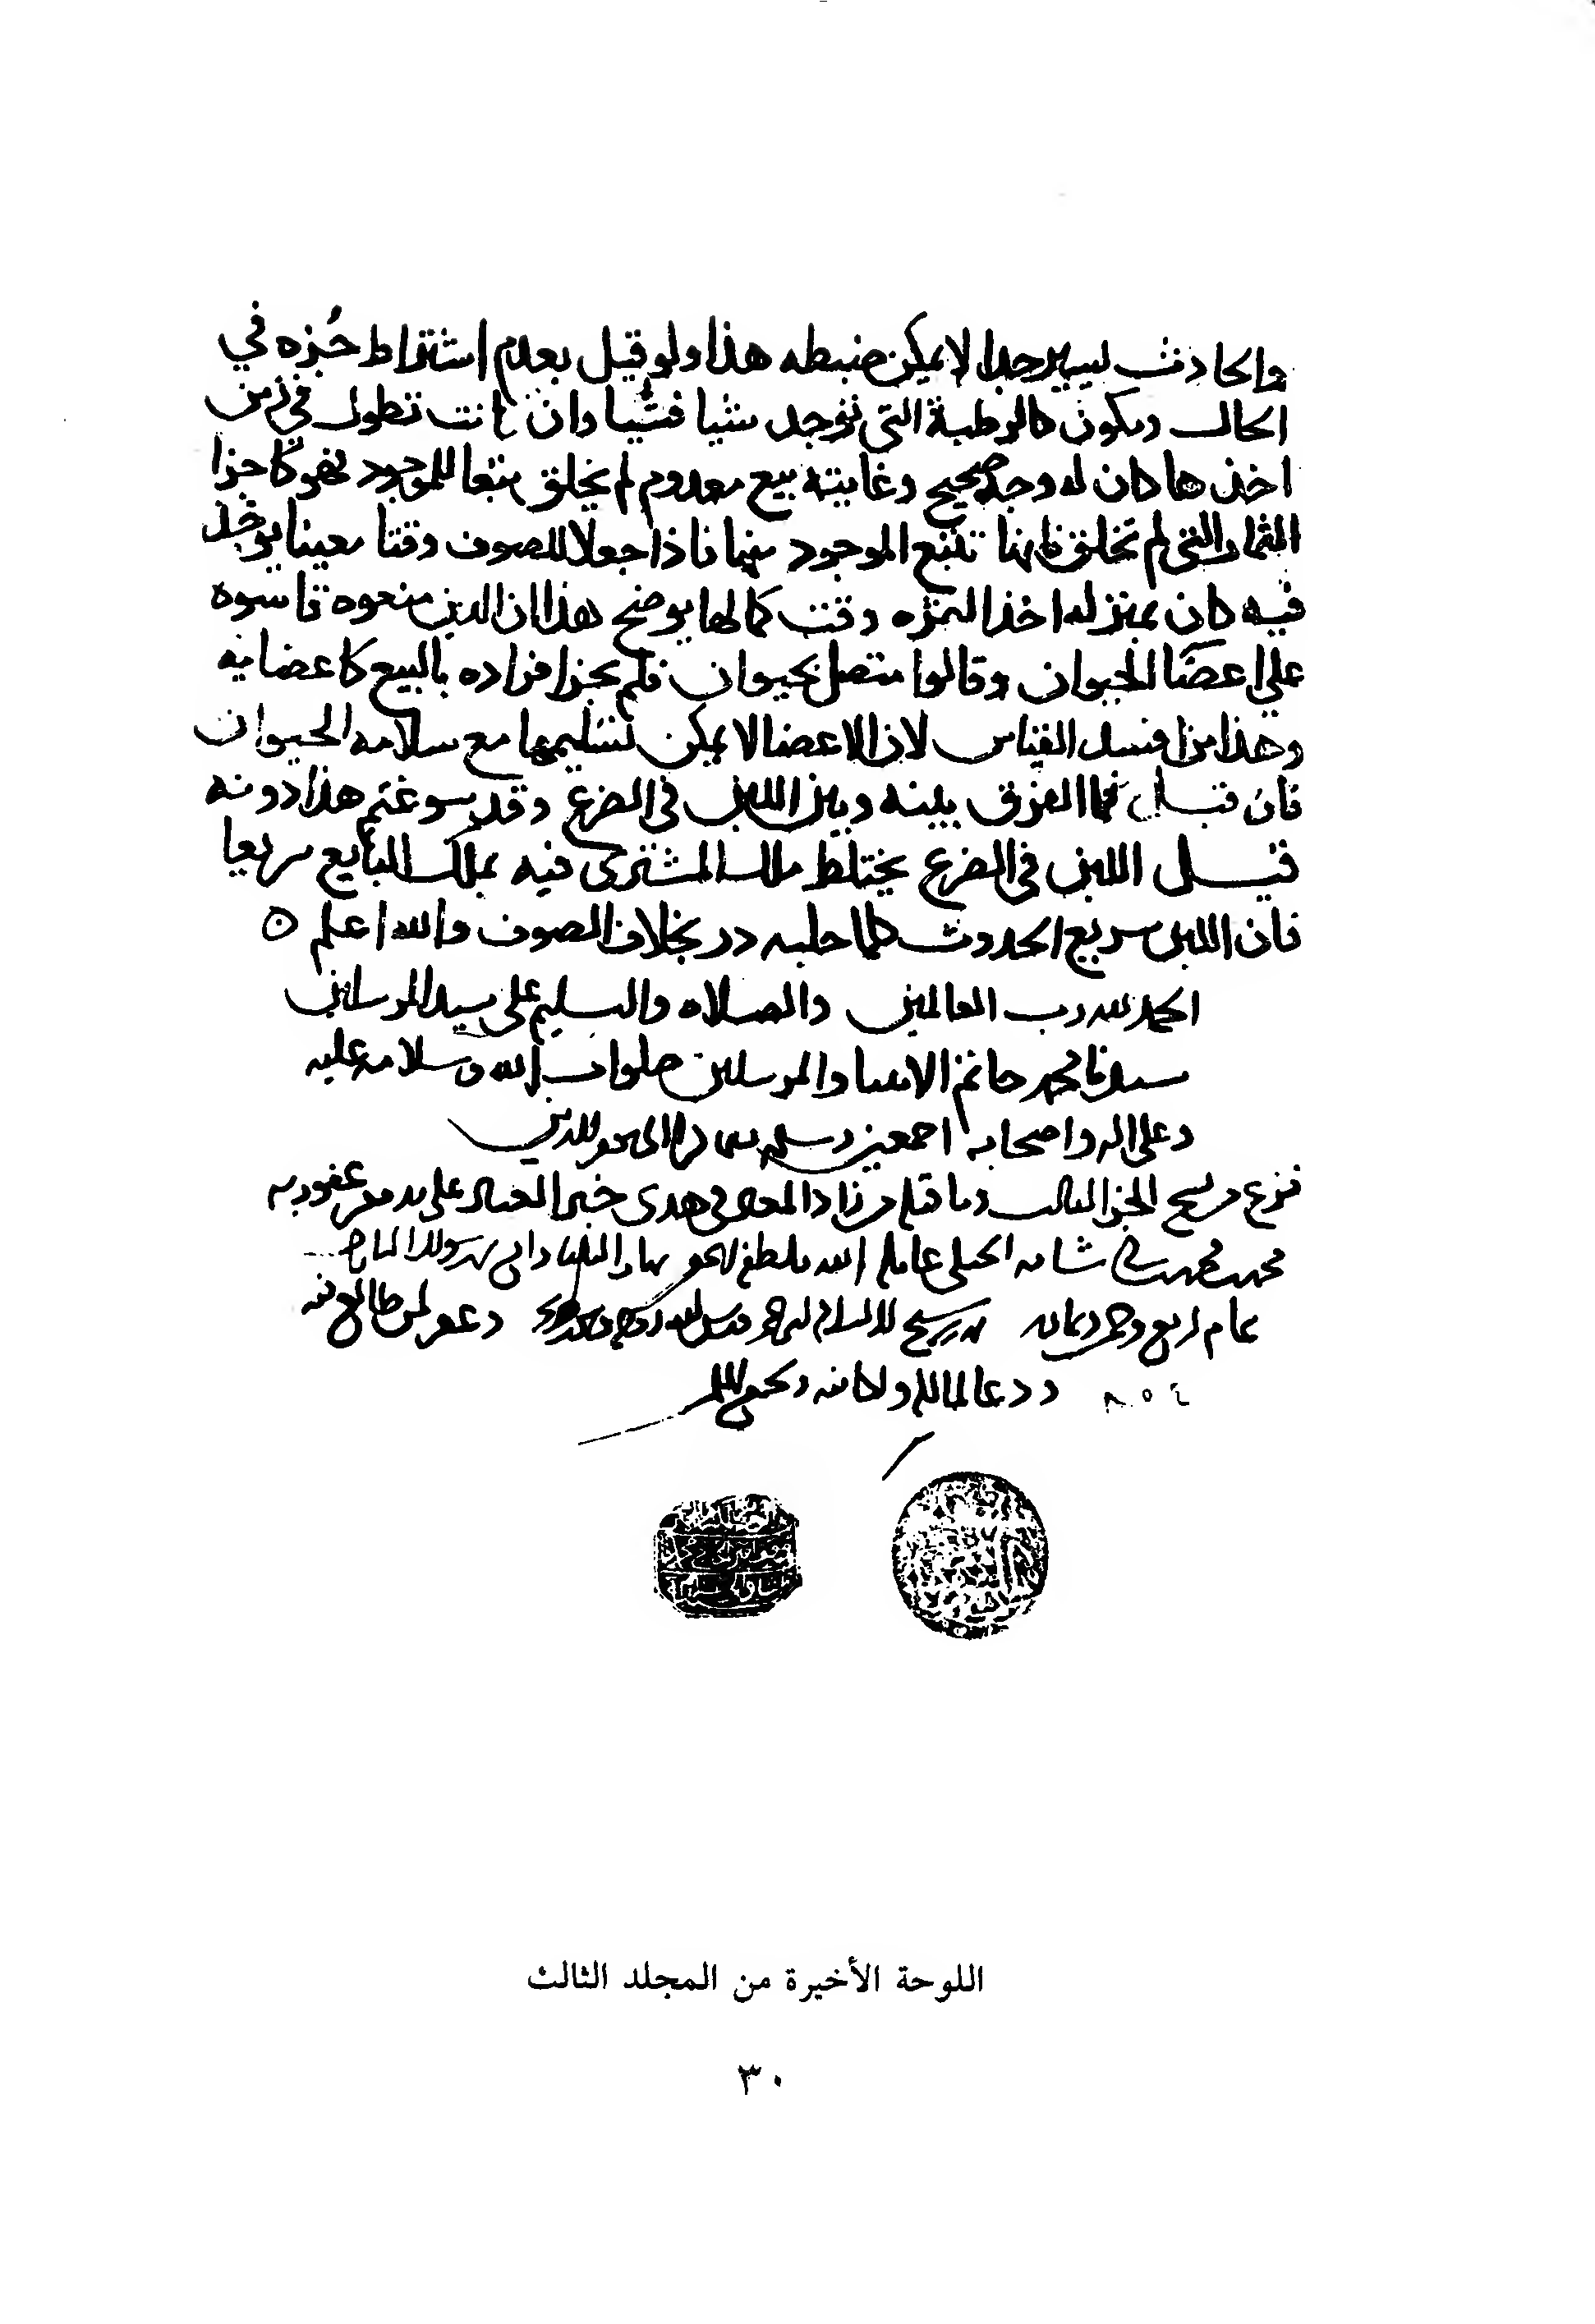 والحادث يسير جدا لا يمكن ضبطه هذا ولو قيل بعدم اشتراط جزه في
الحال ويكون كالرطبة التي توجد شيا فشيا وان كانت تطول في زمن
اخذها كان له وجه صحيح وغايته بيع معدوم لم يخلق تبعا للموجود فهو كاجزا
الثمار التي لم تخلق فانها تتبع الموجود منها فاذا جعلا للصوف وقتا معينا يوخذ
فيه كان بمنزله اخذ الثمره وقت كمالها يوضح هذا ان الذين منعوه قاسوه
علي اعضا الحيوان وقالوا متصل بحيوان فلم يجز افراده بالبيع كاعضايه
وهذا من افسد القياس لان الاعضا لا يمكن تسليمها مع سلامه الحيوان
فان قيل فما الفرق بينه وبين اللبن في الضرع وقد سوغتم هذا دونه
قيل اللبن في الضرع يختلط ملك المشتري فيه بملك البايع سريعا
فان اللبن سريع الحدوث كلما حلبه در بخلاف الصوف والله اعلم ٥
الحمد لله رب العالمين والصلاه والتسليم على سيد المرسلين
سيدنا محمد خاتم الانبيا والمرسلين صلوات الله وسلامه عليه
وعلى اله واصحابه اجمعين وسلم الدين
فرغ من نسخ الجز الثالث وما قبله من زاد المعاد في هدى خير العباد على يد فقير عفو ربه
محمد بن محمد بن الحنبلي عامله الله بلطفه
عام اربع وخمسين وثمانمايه وغفر لمن طالع فيه
ودعا لمالكه ولكاتبه
٨٥٤
اللوحة الأخيرة من المجلد الثالث
٣٠